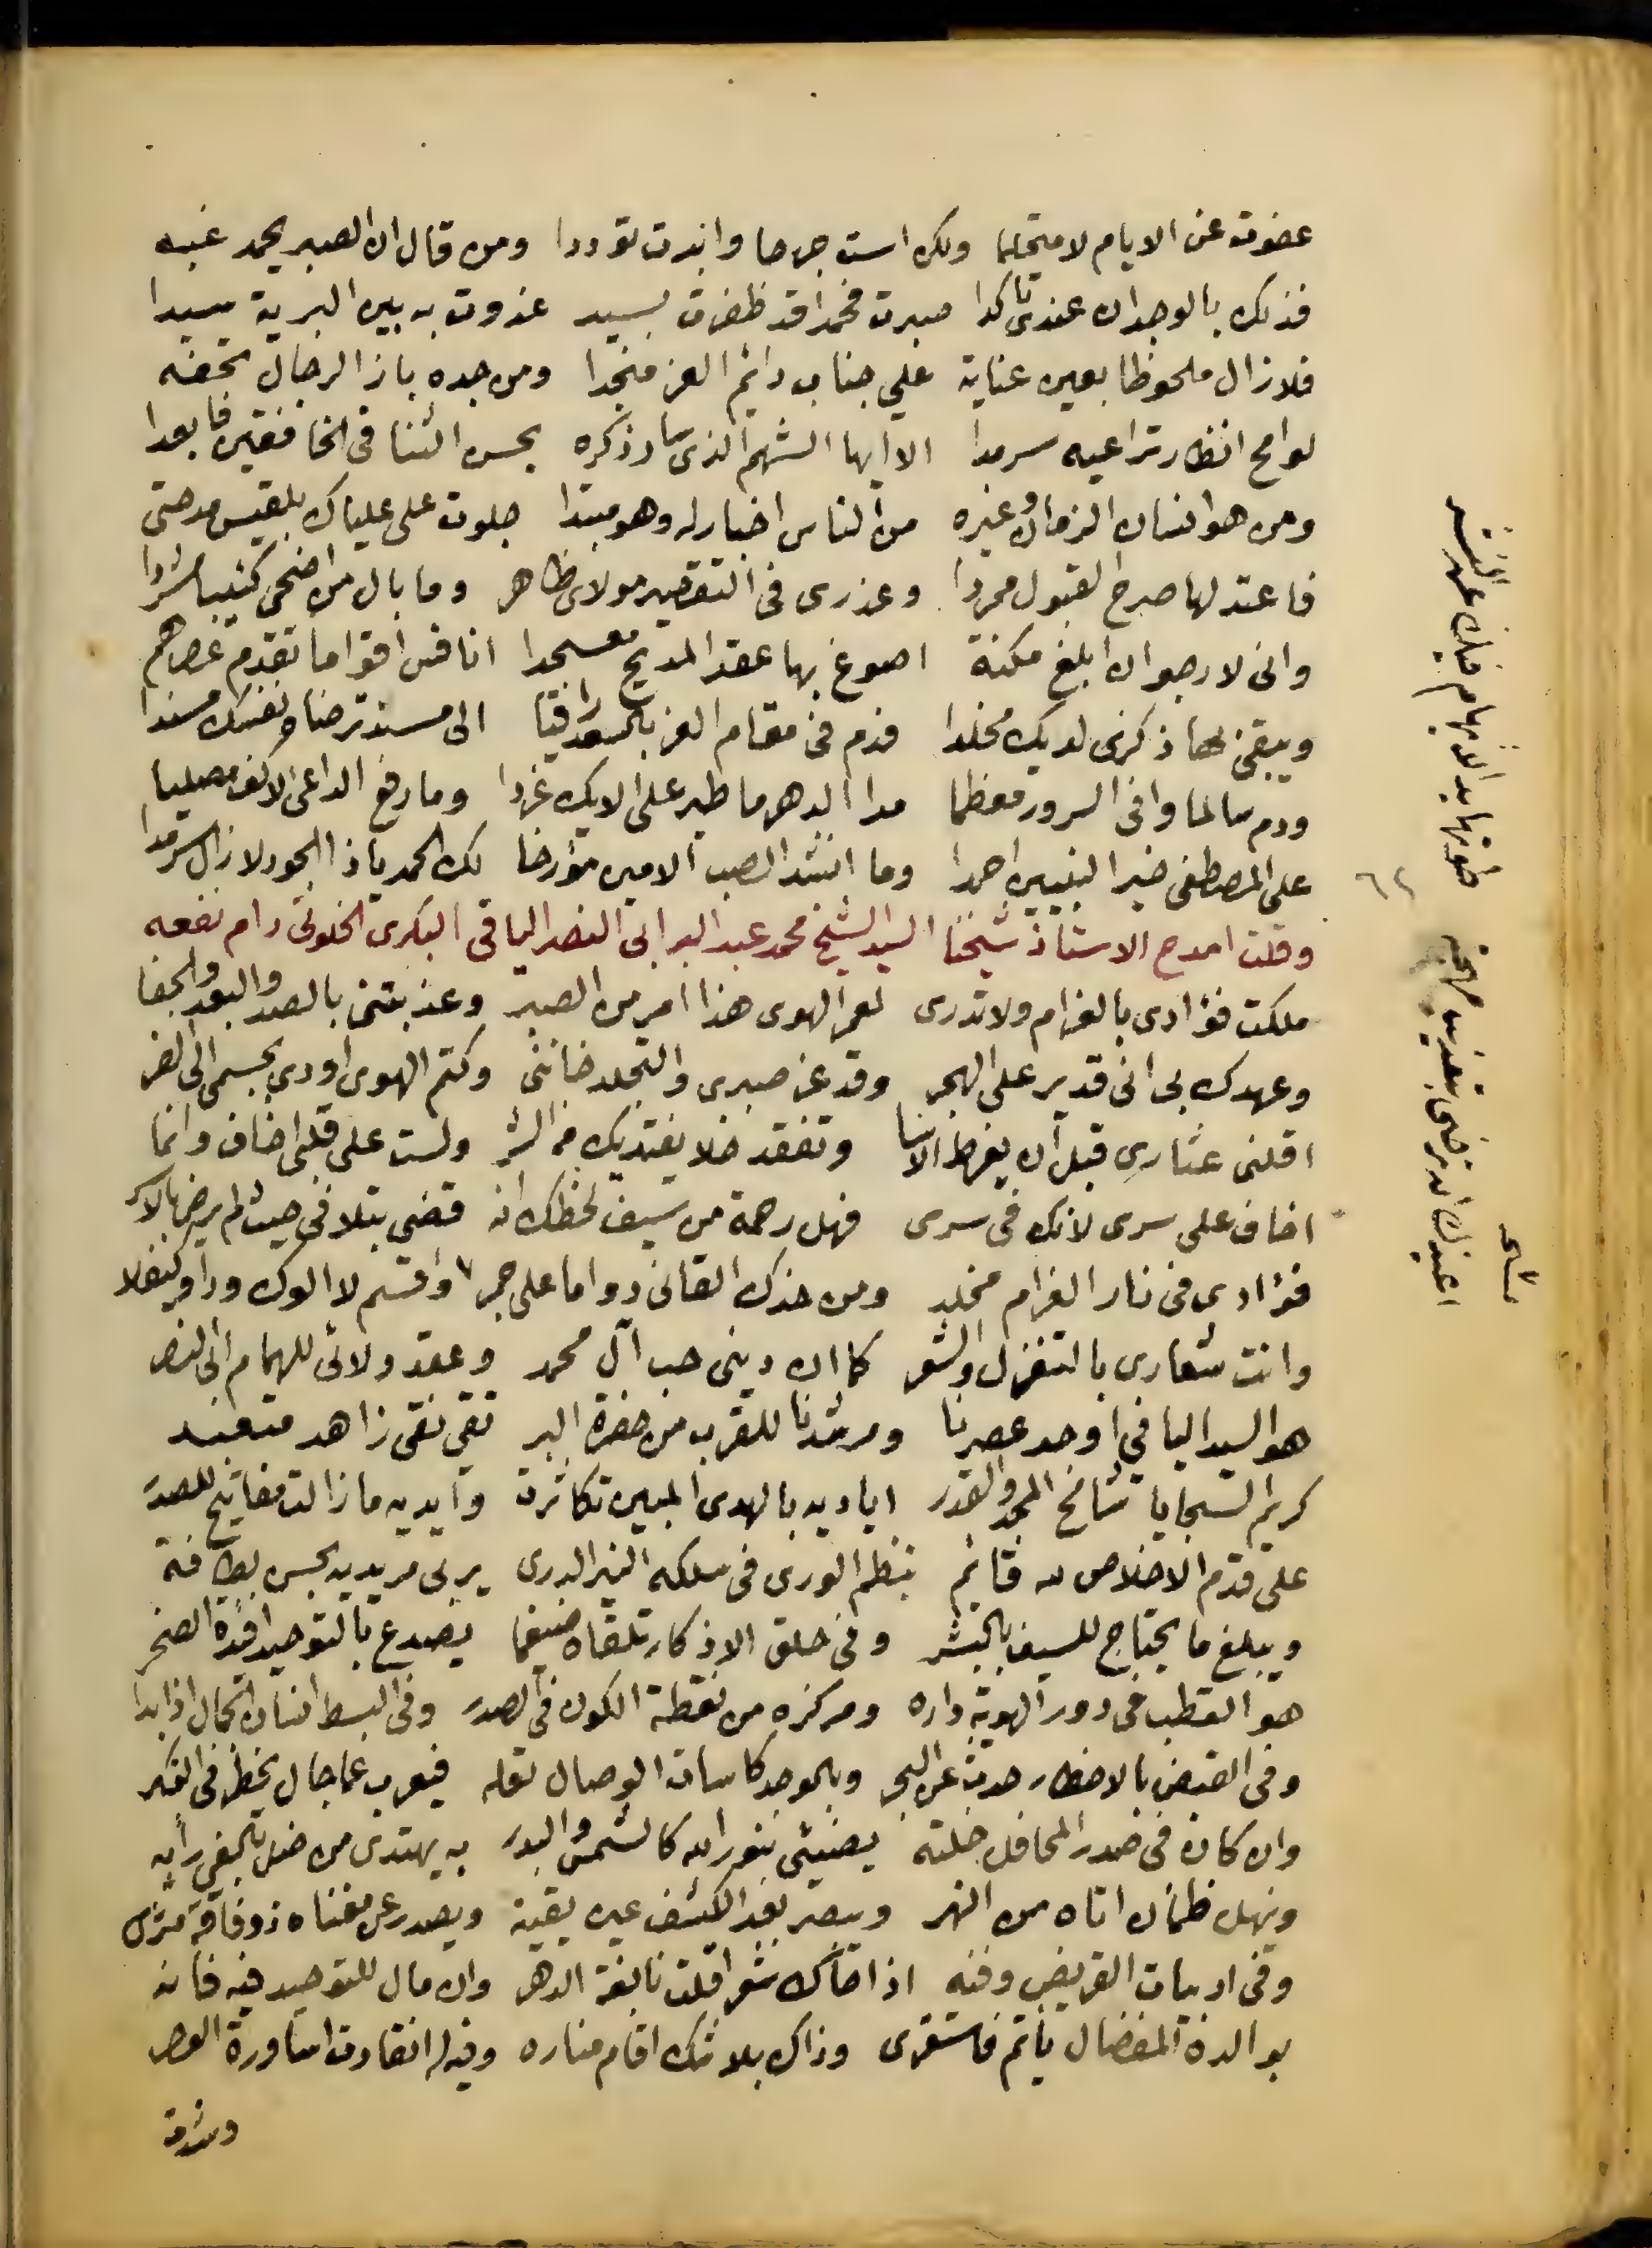 عفوت عن الايام لا متحلما ولكن است جرحا وابدت توددا ومن قال ان الصبر يحمد غبه
فذلك بالوجدان عندي تاكدا صبرت محمدا قد ظفرت بسيد غدوت به بين البرية سيدا
فلا زال ملحوظا بعين عناية علي جناب دائم العز منجدا ومن جده باز الرجال تحفه
لوامح انظار تراعيه سرمدا الا ايها الشهم الذي سار ذكره بحسن الثنا في الخافقين فابعدا
ومن هو انسان الزمان وغيره من الناس اخبار له وهو مبتدا جلوت على علياك بلقيس مدحتي
فاعتد لها صرح القبول ممردا وعذري في التقصير مولاي ظاهر وما بال من اضحى كئيبا مشردا
واني لارجو ان ابلغ مكنة اصوغ بها عقد المديح معسجدا انافس اقواما تقدم عصرهم
ويبقى بها ذكري لديك مخلدا فدم في مقام العز بالسعد راقيا الى مسند ترضاه نفسك مسندا
ودم سالما وافى السرور معظما مدا الدهر ما طير على الايك غردا وما رفع الداعي الاكف مصليا
على المصطفى خير النبيين احمدا وما انشد الصب الامين مؤرخا لك الحمد يا ذا الجود لا زال سرمدا
وقلت امدح الاستاذ شيخنا السيد الشيخ محمد عبد البر ابي النصر اليافي البكري الخلوتي دام نفعه
ملكت فؤادي بالغرام ولا تدري لعمر الهوى هذا امر من الصبر وعذبتني بالصد والبعد والجفا
وعهدك بي اني قدير على الهجر وقد عز صبري والتجلد خانني وكتم الهوى اودي بجسمي الى الضر
اقلني عثاري قبل ان يفرط الاسا وتفقد خلا يفتديك من الشر ولست على قلبي اخاف وانما
اخاف على سري لانك في سري فهل رحمة من سيف لحظك انه قضى بتلافي حيث لم يرض بالاسر
فؤادي في نار الغرام مخلد ومن خدك القاني دواما على جمر واقسم لا الوك ودا وكيف لا
وانت شعاري بالتغزل والشعر كما ان ديني حب آل محمد وعقد ولائي للهمام ابي النصر
هو السيد اليافي اوحد عصرنا ومرشدنا للقرب من حضرة البر تقي نقي زاهد متعبد
كريم السجايا شامخ المجد والقدر اياديه بالهدى المبين تكاثرت وايديه ما زالت مفاتيح للصدر
على قدم الاخلاص لله قائم ينظم الورى في سلكه النير الدري يربي مريديه بحسن لطافة
ويبلغ ما يحتاج للسيف بالبشر وفي حلق الاذكار تلقاه ضيغما يصدع بالتوحيد افئدة الصخر
هو القطب في دور الهوية داره ومركزه من نقطة الكون في الصدر وفي البسط انسان الكمال اذا بدا
وفي القبض بالاخطار حدث عن البحر وبالوجد كاسات الوصال تعله فيعرب عما جال بخطر في الفكر
وان كان في صدر المحافل خلته يضيئ بنور الله كالشمس والبدر به يهتدى من ضل بالغي رايه
وينهل ظمان اتاه من النهر ويبصر بعد الكشف عين يقينه ويصدر عن مغناه ذو فاقة مثرى
وفي ادبيات القريض وفنه اذا حاك شعرا قلت نابغة الدهر وان مال للتوحيد فيه فانه
بوالده المفضال ياتم فاستقرى وذاك بلا شك اقام مناره وفيه له انقادت اساورة العصر
وشدت
٦٢